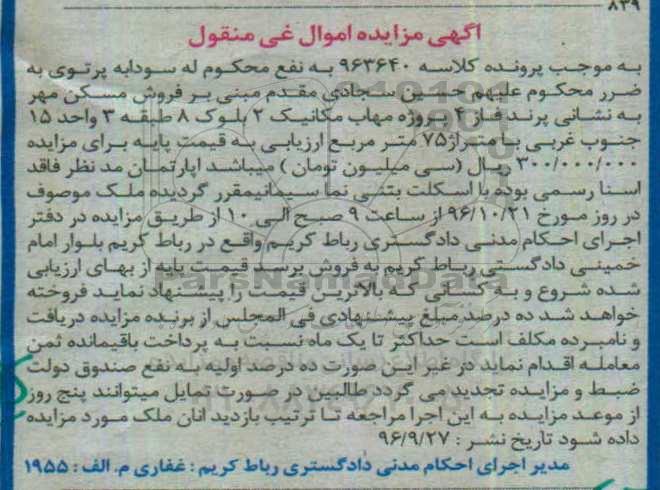 ۸۳۹
آگهی مزایده اموال غی منقول
به موجب پرونده کلاسه ۹۶۳۶۴۰ به نفع محکوم له سودابه پرتوی به
ضرر محکوم علیهم حسین سجادی مقدم مبنی بر فروش مسکن مهر
به نشانی پرند فاز ۴ پروژه مهاب مکانیک ۲ بلوک ۸ طبقه ۳ واحد ۱۵
جنوب غربی با متراژ ۷۵ متر مربع ارزیابی به قیمت پایه برای مزایده
۳۰۰/۰۰۰/۰۰۰ ریال (سی میلیون تومان) میباشد اپارتمان مد نظر فاقد
اسنا رسمی بوده با اسکلت بتنی نما سیمانیمقرر گردیده ملک موصوف
در روز مورخ ۹۶/۱۰/۲۱ از ساعت ۹ صبح الی ۱۰ از طریق مزایده در دفتر
اجرای احکام مدنی دادگستری رباط کریم واقع در رباط کریم بلوار امام
خمینی دادگستی رباط کریم به فروش برسد قیمت پایه از بهای ارزیابی
شده شروع و به کسی که بالاترین قیمت را پیشنهاد نماید فروخته
خواهد شد ده درصد مبلغ پیشنهادی فی المجلس از برنده مزایده دریافت
و نامبرده مکلف است حداکثر تا یک ماه نسبت به پرداخت باقیمانده ثمن
معامله اقدام نماید در غیر این صورت ده درصد اولیه به نفع صندوق دولت
ضبط و مزایده تجدید می گردد طالبین در صورت تمایل میتوانند پنج روز
از موعد مزایده به این اجرا مراجعه تا ترتیب بازدید انان ملک مورد مزایده
داده شود تاریخ نشر : ۹۶/۹/۲۷
مدیر اجرای احکام مدنی دادگستری رباط کریم : غفاری م. الف : ۱۹۵۵
ParsNamadData